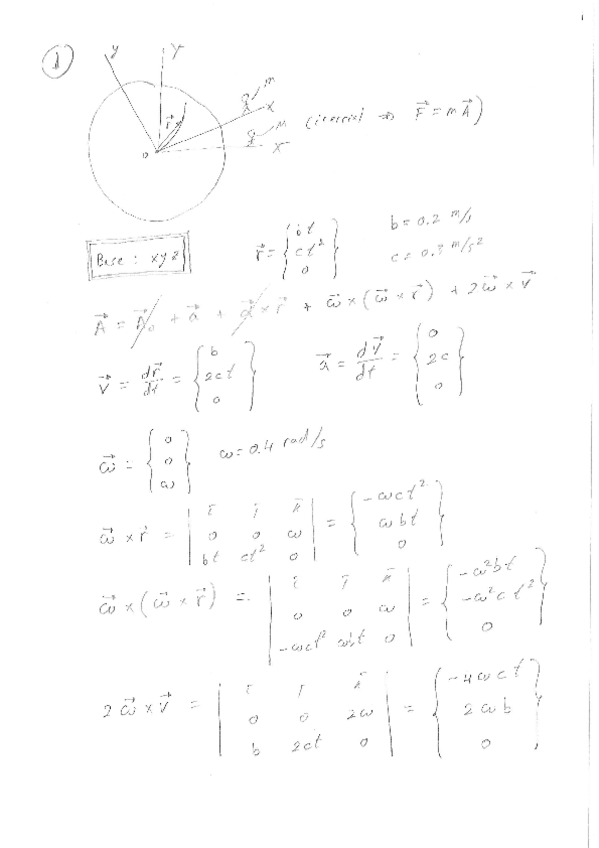 1
①
y Y
m
x
r⃗
M
(inercial ⇒ F⃗ = mA⃗)
O X
Base: xyz
r⃗ = {bt, ct², 0}
b = 0.2 m/s
c = 0.3 m/s²
A⃗ = A⃗₀ + a⃗ + α⃗ × r⃗ + ω⃗ × (ω⃗ × r⃗) + 2ω⃗ × v⃗
v⃗ = dr⃗/dt = {b, 2ct, 0} a⃗ = dv⃗/dt = {0, 2c, 0}
ω⃗ = {0, 0, ω} ω = 0.4 rad/s
ω⃗ × r⃗ = |i j k; 0 0 ω; bt ct² 0| = {-ωct², ωbt, 0}
ω⃗ × (ω⃗ × r⃗) = |i j k; 0 0 ω; -ωct² ωbt 0| = {-ω²bt, -ω²ct², 0}
2ω⃗ × v⃗ = |i j k; 0 0 2ω; b 2ct 0| = {-4ωct, 2ωb, 0}